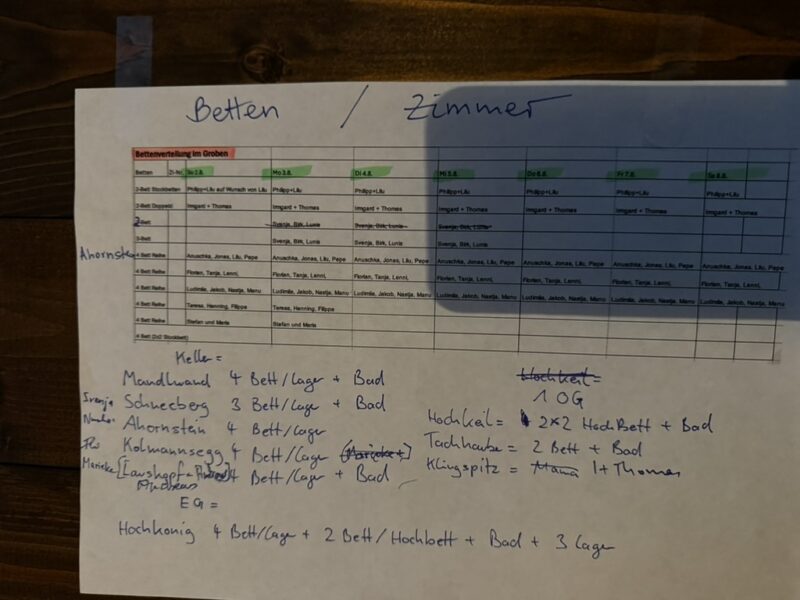 Betten / Zimmer
Bettenverteilung im Groben
Betten Zi-Nr. So 2.8. Mo 3.8. Di 4.8. Mi 5.8. Do 6.8. Fr 7.8. Sa 8.8.
2-Bett Stockbetten Philipp+Lilu auf Wunsch von Lilu Philipp+Lilu Philipp+Lilu Philipp+Lilu Philipp+Lilu Philipp+Lilu Philipp+Lilu
2-Bett Doppelb Irmgard + Thomas Irmgard + Thomas Irmgard + Thomas Irmgard + Thomas Irmgard + Thomas Irmgard + Thomas Irmgard + Thomas
2-Bett Svenja, Birk, Lunis Svenja, Birk, Lunis Svenja, Birk, Lunis
3-Bett Svenja, Birk, Lunis Svenja, Birk, Lunis Svenja, Birk, Lunis
Ahornstein 4 Bett Reihe Anuschka, Jonas, Lilu, Pepe Anuschka, Jonas, Lilu, Pepe Anuschka, Jonas, Lilu, Pepe Anuschka, Jonas, Lilu, Pepe Anuschka, Jonas, Lilu, Pepe Anuschka, Jonas, Lilu, Pepe Anuschka, Jonas, Lilu, Pepe
4 Bett Reihe Florian, Tanja, Lenni, Florian, Tanja, Lenni, Florian, Tanja, Lenni, Florian, Tanja, Lenni, Florian, Tanja, Lenni, Florian, Tanja, Lenni, Florian, Tanja, Lenni,
4 Bett Reihe Ludimila, Jakob, Nastja, Manu Ludimila, Jakob, Nastja, Manu Ludimila, Jakob, Nastja, Manu Ludimila, Jakob, Nastja, Manu Ludimila, Jakob, Nastja, Manu Ludimila, Jakob, Nastja, Manu Ludimila, Jakob, Nastja, Manu
4 Bett Reihe Teresa, Henning, Filippa Teresa, Henning, Filippa
4 Bett Reihe Stefan und Maria Stefan und Maria
4 Bett (2x2 Stockbett)
Keller =
Mandlwand 4 Bett/Lager + Bad
Svenja Schneeberg 3 Bett/Lager + Bad
Ahornstein 4 Bett/Lager
Flo Kolmannsegg 4 Bett/Lager
Marieke 4 Bett/Lager + Bad
Andreas
EG =
Hochkönig 4 Bett/Lager + 2 Bett/Hochbett + Bad + 3 Lager
Hochkeil =
1 OG
Hochkeil = 2x2 HochBett + Bad
Tachhaube = 2 Bett + Bad
Klingspitz = Mama I+Thomas